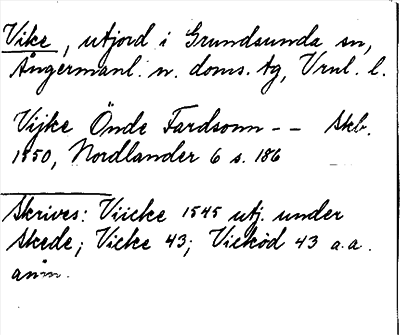 Vike, utjord i Grundsunda sn,
Ångermanl. n. doms. tg, Vrnl. l.
Vijke Önde Fardsonn -- Skb.
1550, Nordlander 6 s. 186
Skrives: Viicke 1545 utj. under
Skede; Vicke 43; Vickod 43 a.a.
anm.